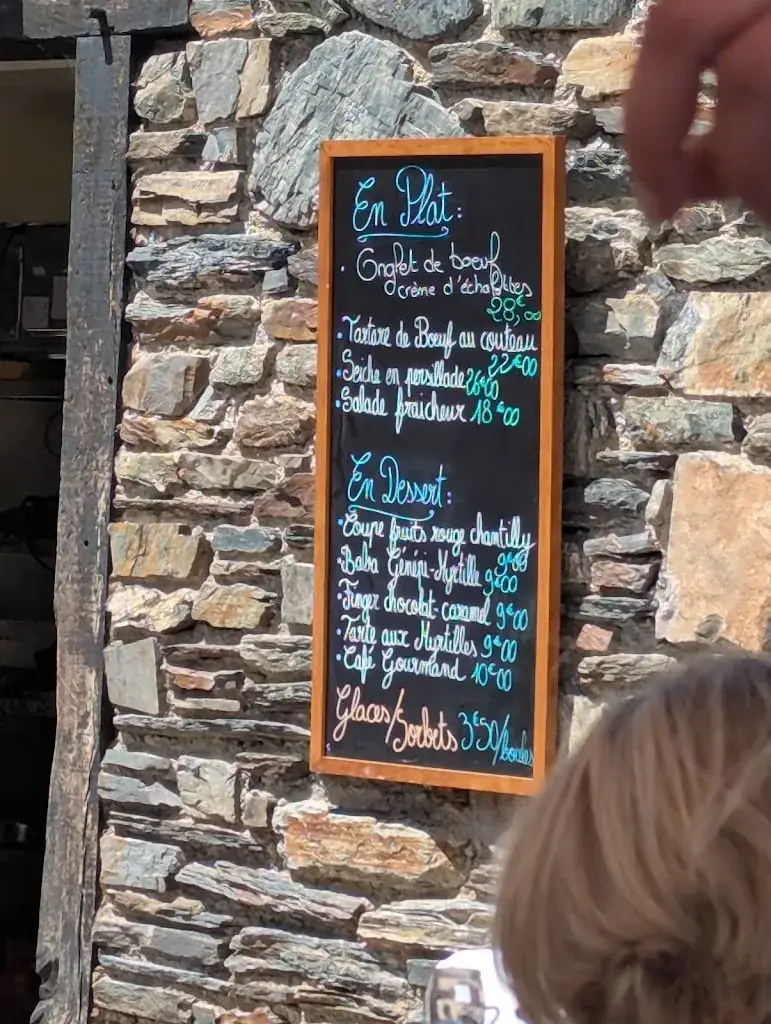 En Plat :
· Onglet de boeuf
crème d'échalottes
28,00
· Tartare de Boeuf au couteau
22€00
· Seiche en persillade 26€00
· Salade fraicheur 18€00
En Dessert :
· Coupe fruits rouge chantilly
9€00
· Baba Génépi-Myrtille 9€00
· Finger chocolat-caramel 9€00
· Tarte aux Myrtilles 9€00
· Café Gourmand 10€00
Glaces/Sorbets 3€50/boules